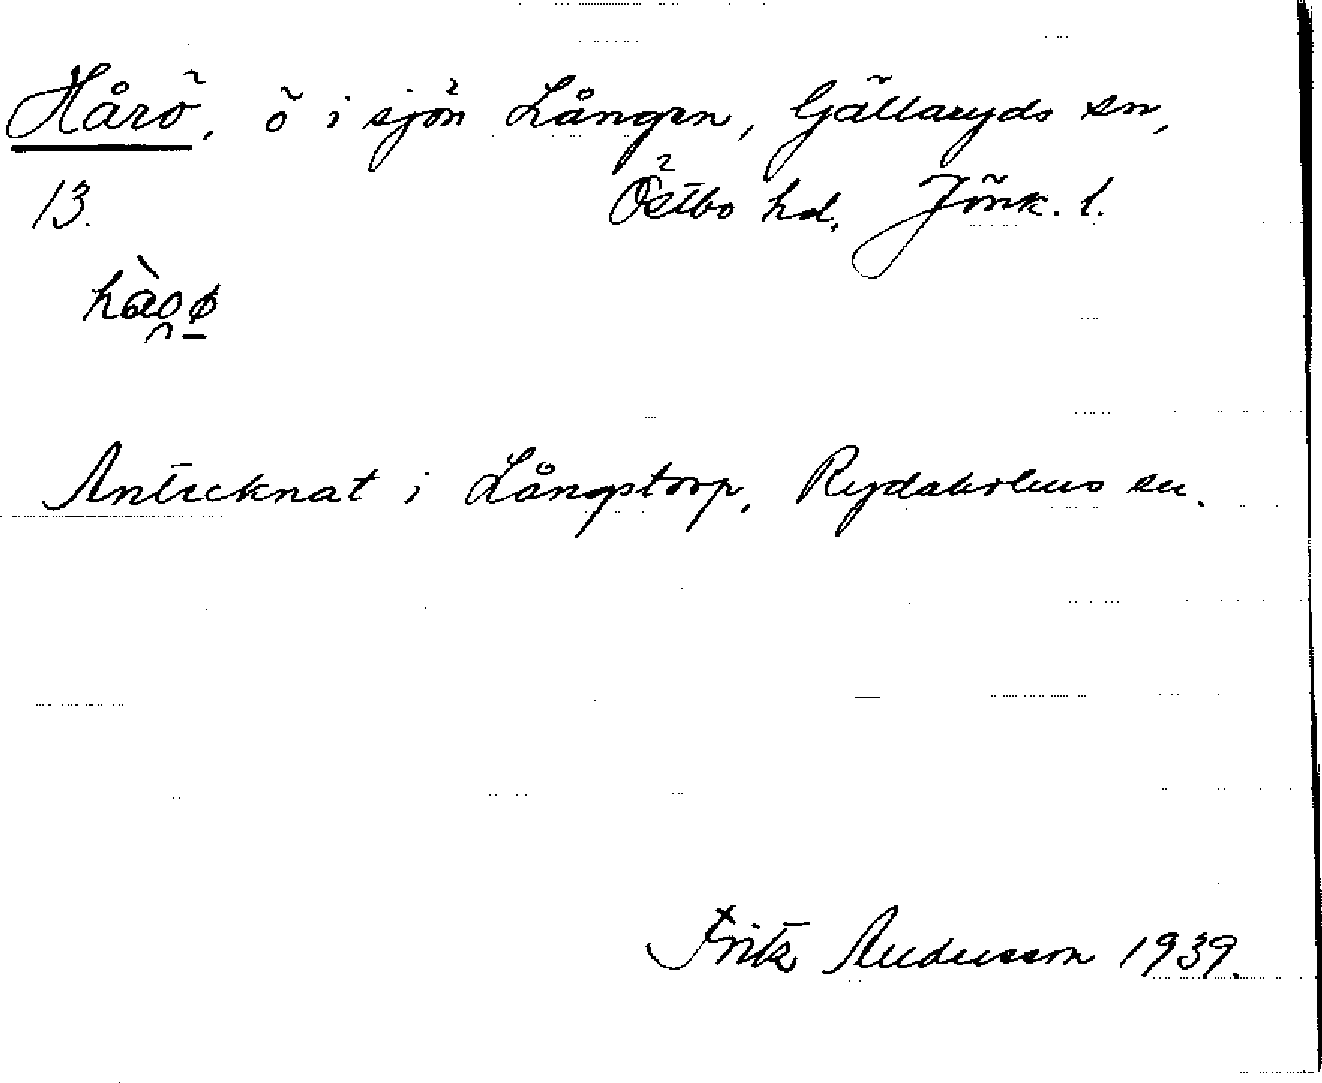 Hårö, ö i sjön Lången, Gällaryds sn,
13. Östbo hd, Jönk. l.
Antecknat i Långstorp, Rydaholms sn.
Fritz Andersson 1939.